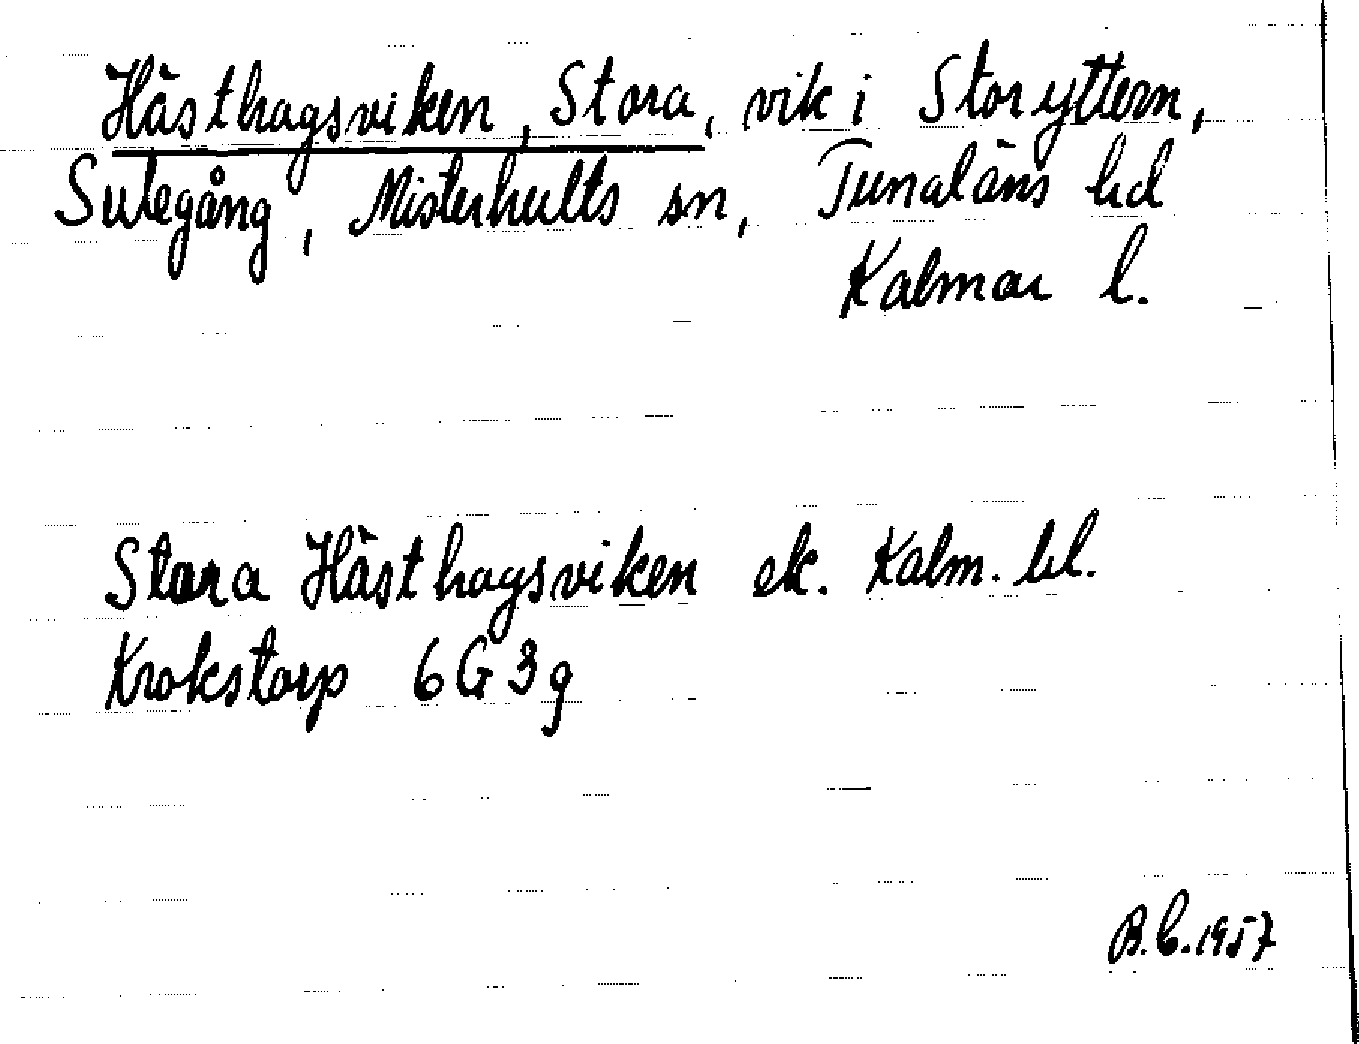 Hästhagsviken, Stora, vik i Storyttern,
Sulegång, Misterhults sn, Tunaläns hd
Kalmar l.
Stora Hästhagsviken ek. Kalm. bl.
Krokstorp 6G3g
B.C.1957